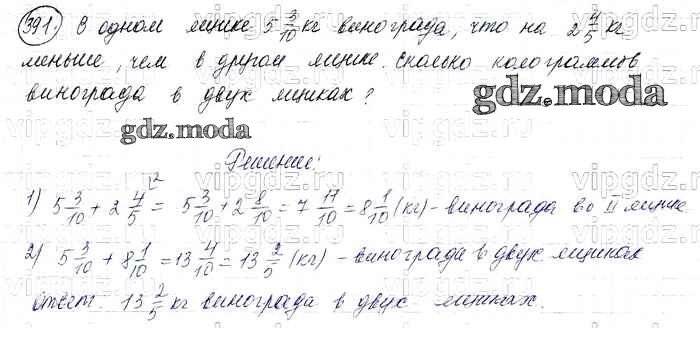 391. В одном ящике 5 3/10 кг винограда, что на 2 4/5 кг
меньше, чем в другом ящике. Сколько килограммов
винограда в двух ящиках?
gdz.moda
gdz.moda
Решение:
1) 5 3/10 + 2 4/5 = 5 3/10 + 2 8/10 = 7 11/10 = 8 1/10 (кг) - винограда во II ящике
2) 5 3/10 + 8 1/10 = 13 4/10 = 13 2/5 (кг) - винограда в двух ящиках
Ответ: 13 2/5 кг винограда в двух ящиках.